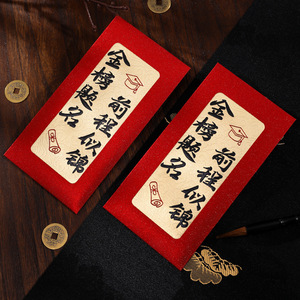 金榜题名
前程似锦
金榜题名
前程似锦